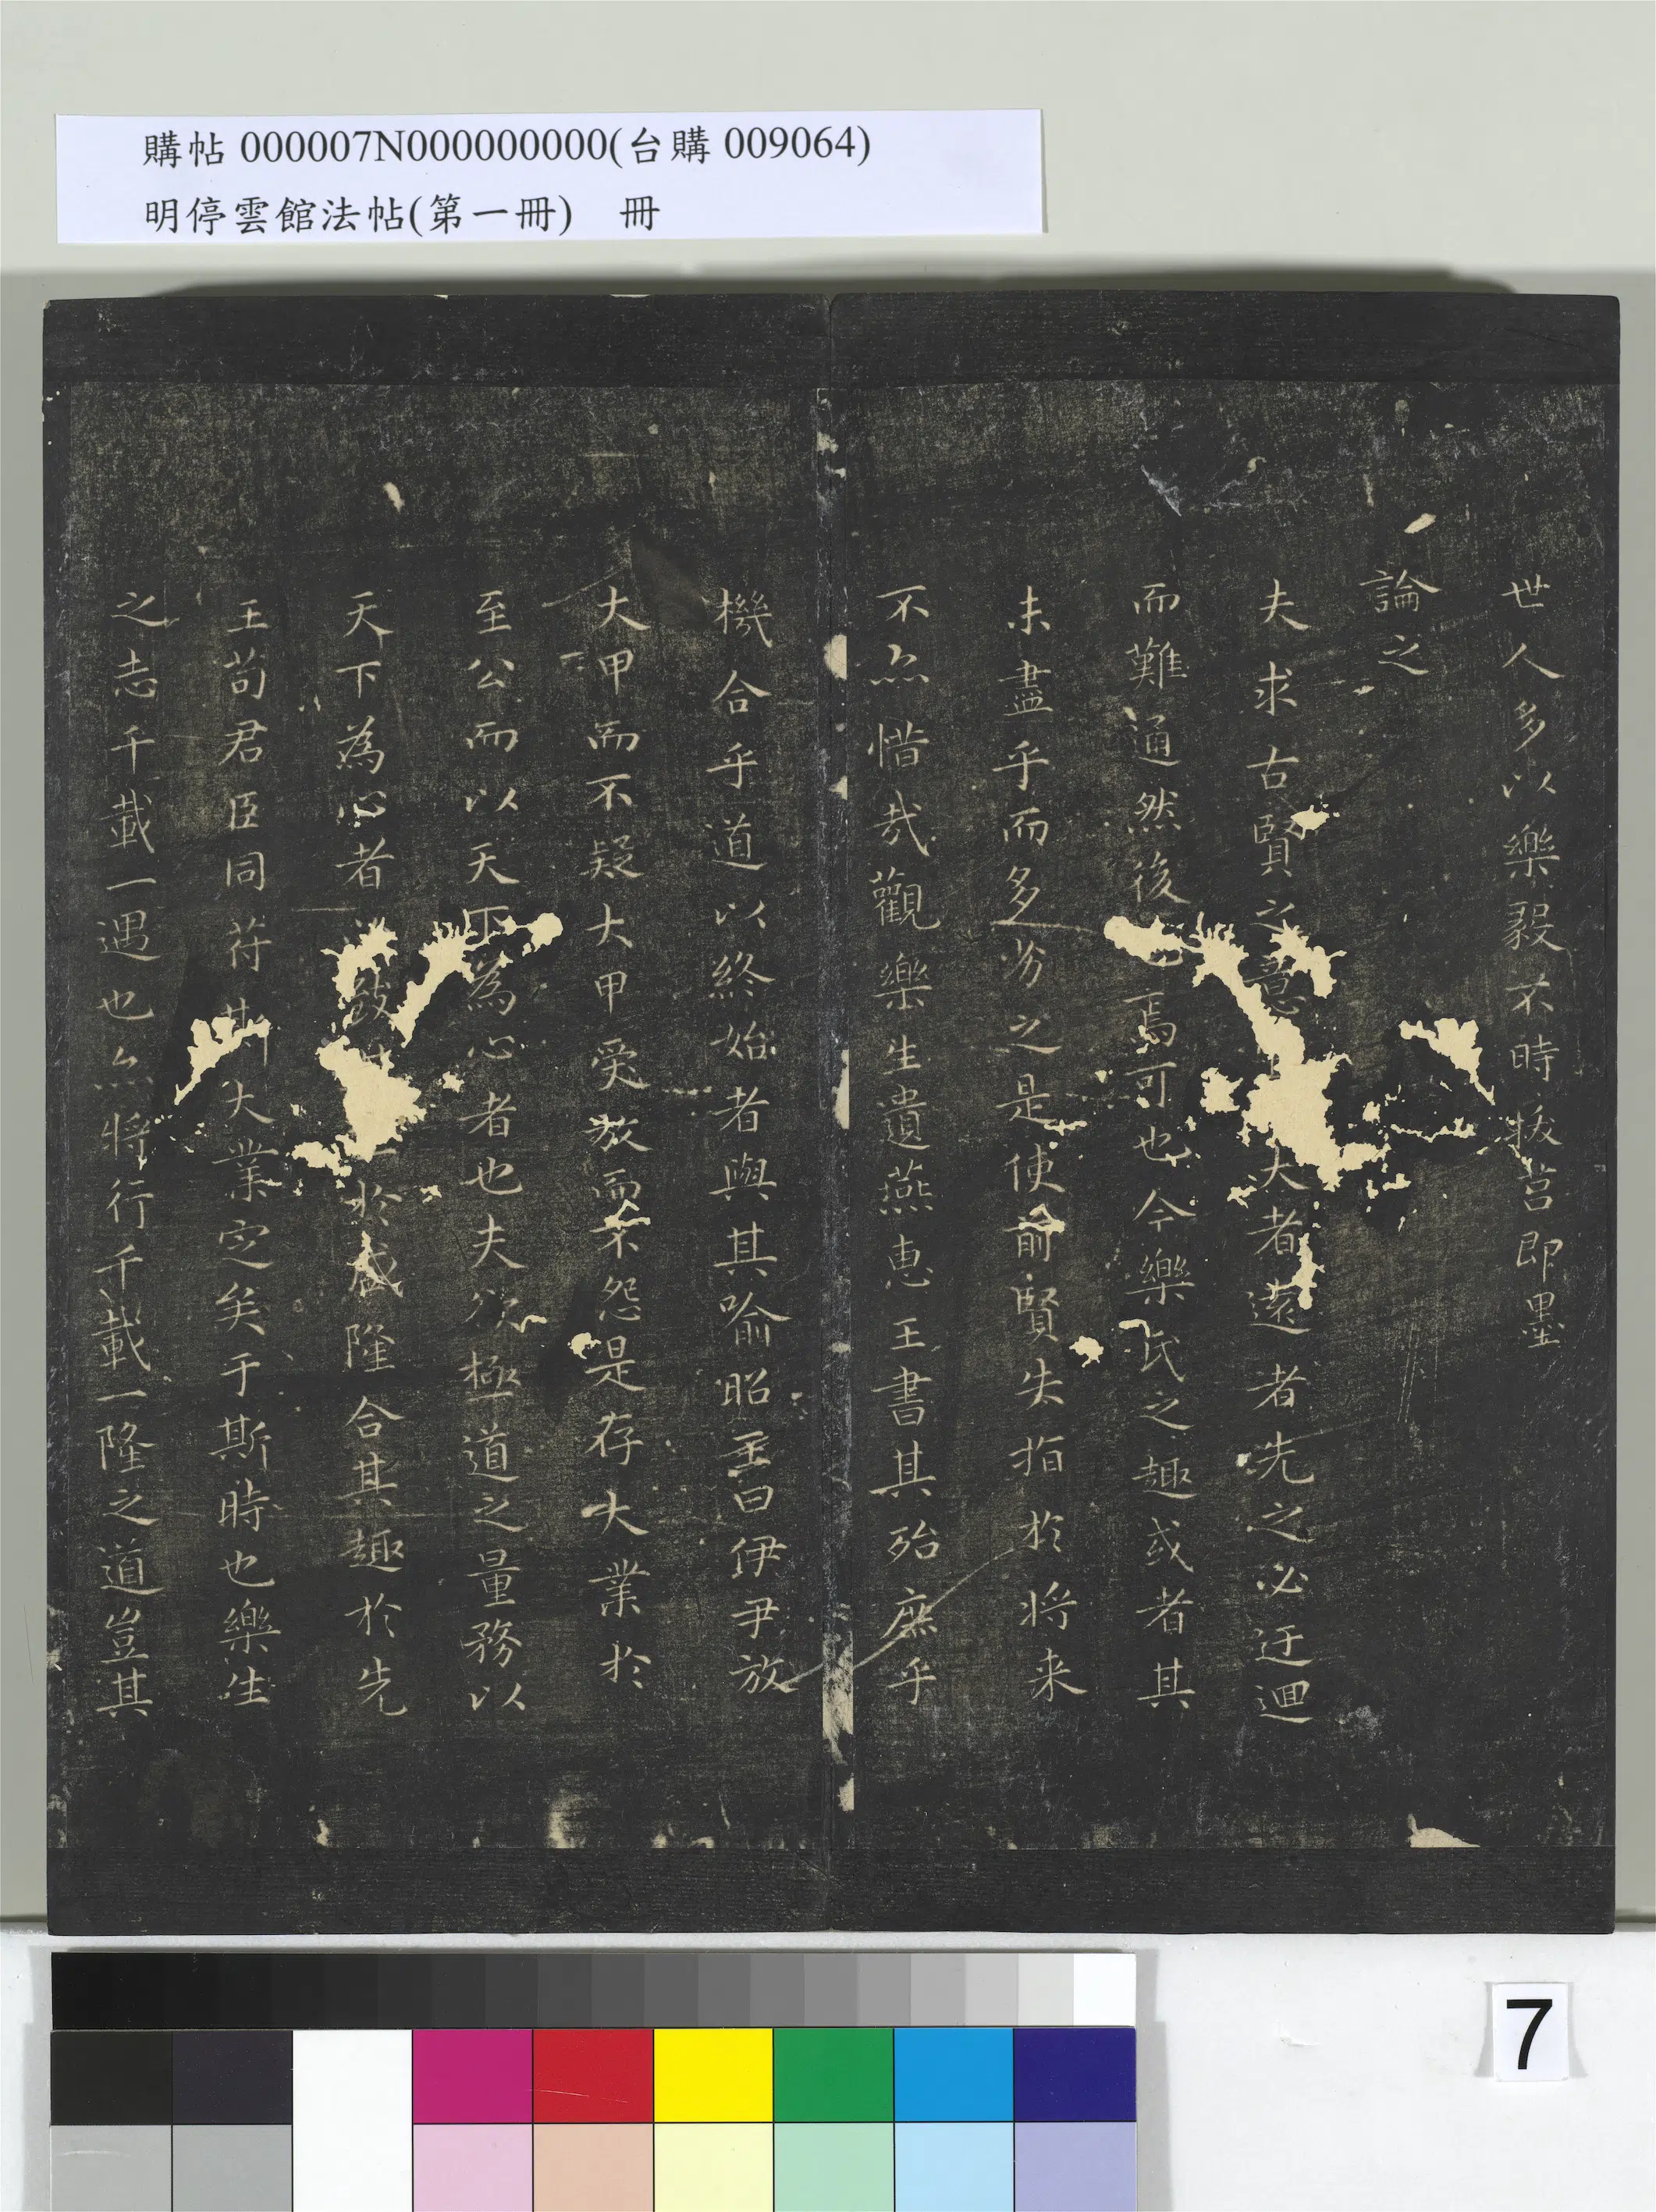 購帖 000007N000000000(台購 009064)
明停雲館法帖(第一冊) 冊
世人多以樂毅不時拔莒即墨
論之
夫求古賢之意大者遠者先之必迂迴
而難通然後焉可也今樂氏之趣或者其
未盡乎而多劣之是使前賢失指於将来
不尒惜哉觀樂生遺燕惠王書其殆庶乎
機合乎道以終始者與其喻昭王曰伊尹放
大甲而不疑大甲受放而不怨是存大業於
至公而以天下為心者也夫欲極道之量務以
天下為心者於盛隆合其趣於先
王苟君臣同苻斯大業定矣于斯時也樂生
之志千載一遇也尒将行千載一隆之道豈其
7